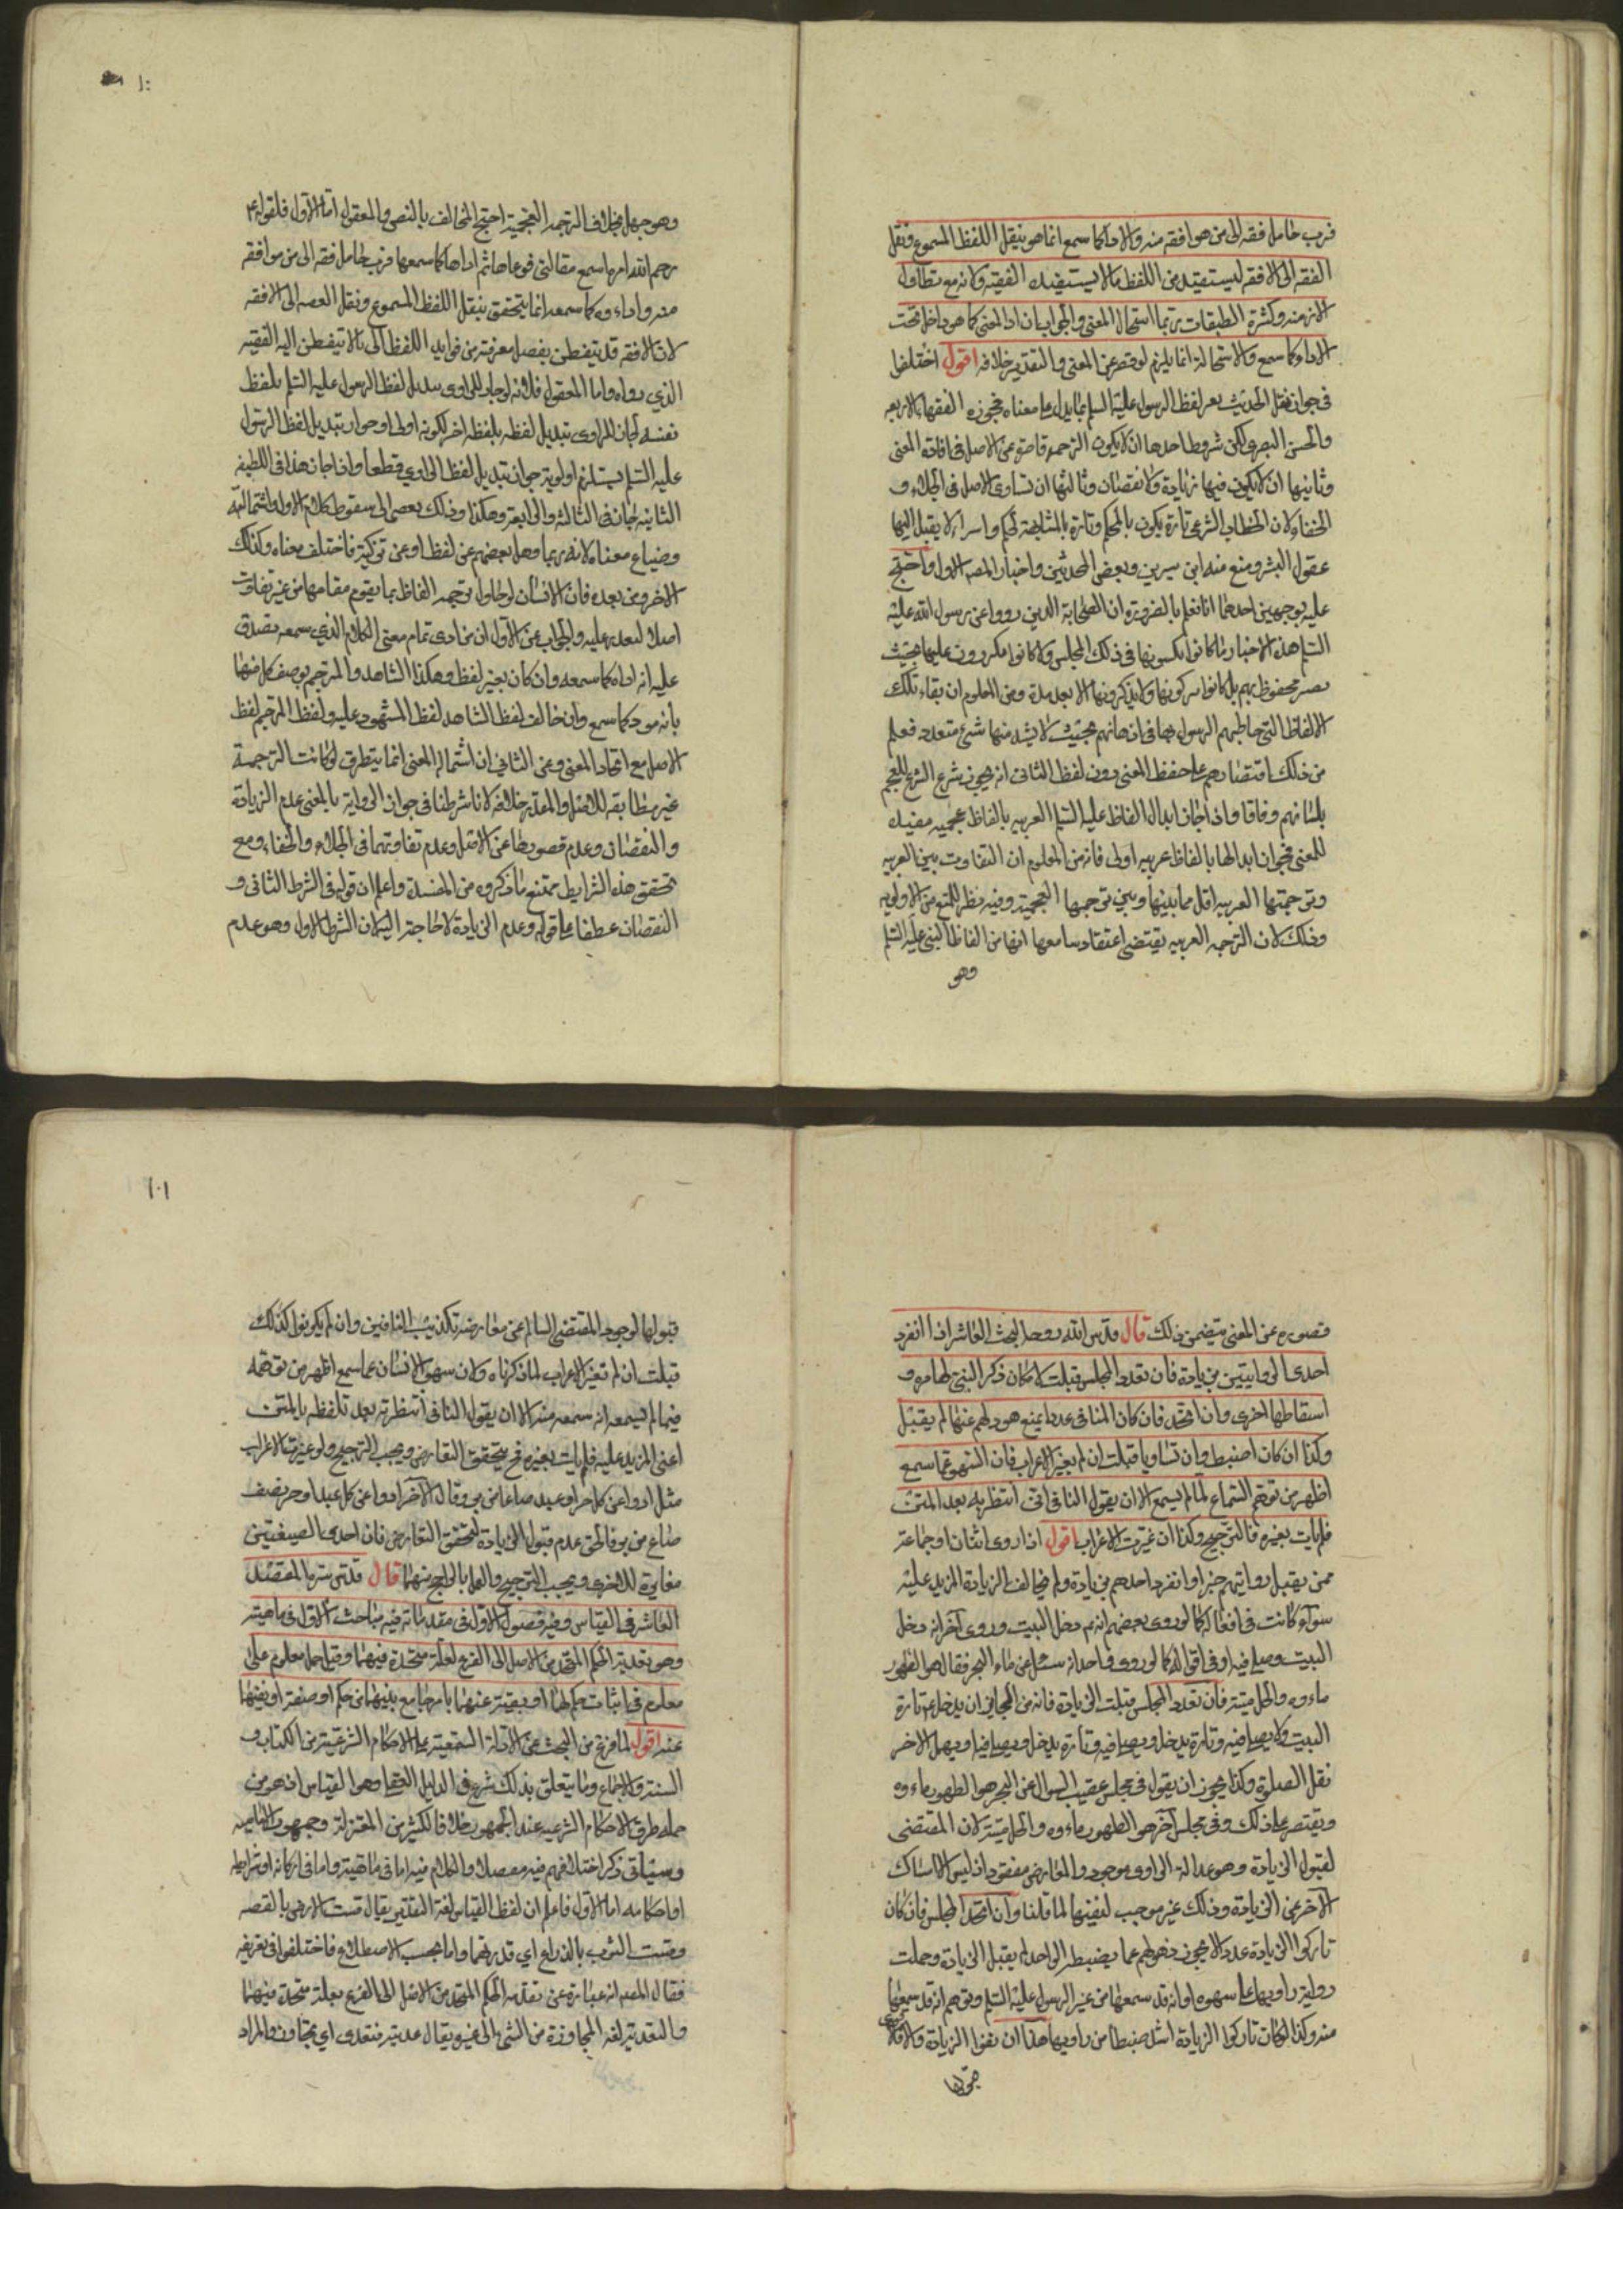 فرب حامل فقه الى من هو افقه منه والاداء كما سمع انما هو بنقل اللفظ المسموع ونقل
الفقه الى الافقه ليستفيد من اللفظ ما لا يستفيده الفقيه ولانه مع تطاول
الازمنه وكثرة الطبقات ربما استحال المعنى والجواب ان اداء المعنى كما هو داخل تحت
الاداء كما سمع والاستحالة انما يلزم لو قصر عن المعنى والتقدير خلافه اقول اختلفوا
فى جواز نقل الحديث بغير لفظ الرسول عليه السلم بما يدل على معناه فجوزه الفقهاء الاربعه
والحسن البصرى لكن شروط احدها ان لا يكون الترجمه قاصرة عن الاصل فى افادة المعنى
وثانيها ان لا يكون فيها زيادة ولا نقصان وثالثها ان تساوى الاصل فى الجلاء و
الخفاء لان الخطاب الشرعى تارة يكون بالمحكم وتارة بالمتشابه لحكم واسرار لا يقبل اليها
عقول البشر ومنع منه ابن سيرين وبعض المحدثين واختار المصه الاول واحتج
عليه بوجهين احدهما انا نعلم بالضرورة ان الصحابة الذين رووا عن رسول الله عليه
السلم هذه الاخبار ما كانوا يكتبونها فى ذلك المجلس ولا كانوا يكررون عليها بحيث
يصير محفوظ لهم بل كانوا يتركونها ولا يذكرونها الا بعد مدة ومن المعلوم ان بقاء تلك
الالفاظ التى خاطبهم الرسول بها فى اذهانهم بحيث لا يشذ منها شئ متعذر فعلم
من ذلك اقتصارهم على حفظ المعنى دون لفظ الثانى انه يجوز شرع الشرع للعجم
بلسانهم وفاقا واذا جاز ابدال الفاظ عليه السلم العربيه بالفاظ عجميه مفيده
للمعنى فجواز ابدالها بالفاظ عربيه اولى فانه من المعلوم ان التفاوت بين العربيه
وترجمتها العربيه اقل مما بينها وبين ترجمتها العجميه وفيه نظر للمنع من الاولويه
وذلك لان الترجمه العربيه يقتضى اعتقاد سامعها انها من الفاظ النبى عليه السلم
وهو
وهو جهل بخلاف الترجمه العجمية احتج المخالف بالنص والمعقول اما الاول فلقوله ع
رحم الله امرءا سمع مقالتى فوعاها ثم اداها كما سمعها فرب حامل فقه الى من هو افقه
منه واداءوه كما سمعه انما يتحقق بنقل اللفظ المسموع ونقل الفقه الى الافقه
لان الافقه قد يتفطن بفضل معرفته من فوايد اللفظ الى ما لا يتفطن اليه الفقيه
الذي رواه واما المعقول فلانه لو جاز للراوى تبديل لفظ الرسول عليه السلم بلفظ
نفسه لجاز للراوى تبديل لفظه بلفظ اخر لكونه اولى اذ جواز تبديل لفظ الرسول
عليه السلم يستلزم اولويه جواز تبديل لفظ الراوي قطعا واذا جاز هذا فى الطبقه
الثانيه جاز فى الثالثه والرابعة وهكذا وذلك يفضى الى سقوط كلام الاول واستحالته
وضياع معناه لانه ربما وهل بعضهم عن لفظ او عن تركيبه فاختلف معناه وكذلك
الاخر ومن بعده فان الانسان لو حاول ترجمه الفاظ بما يقوم مقامها من غير تفاوت
اصلا لتعذر عليه والجواب عن الاول ان من ادى تمام معنى الكلام الذي سمعه يصدق
عليه انه اداه كما سمعه وان كان بغير لفظ وهكذا الشاهد والمترجم يوصف كل منهما
بانه مود كما سمع وان خالف لفظ الشاهد لفظ المشهود عليه ولفظ المترجم لفظ
الاصل مع اتحاد المعنى وعن الثانى ان استحالة المعنى انما يتطرق لو كانت الترجمة
غير مطابقه للاصل والمقدر خلافه لانا شرطنا فى جواز الرواية بالمعنى عدم الزيادة
والنقصان وعدم قصورها عن الاصل وعدم تفاوتهما فى الجلاء والخفاء ومع
تحقق هذه الشرايط يمتنع ما ذكروه من المفسدة واعلم ان قوله فى الشرط الثانى و
النقصان عطفا على قوله وعدم الزيادة لا حاجة اليه لان الشرط الاول وهو عدم
قصوره عن المعنى يتضمن ذلك قال قدس الله روحه البحث العاشر اذا انفرد
احدى الروايتين بزيادة فان تعدد المجلس قبلت لامكان ذكر النبى لها مرة و
اسقاطها اخرى وان اتحد فان كان النافى عددا يمنع ذهولهم عنها لم يقبل
وكذا ان كان اضبط وان تساويا قبلت ان لم يغير الاعراب فان السهو عما سمع
اظهر من توهم السماع لما لم يسمع الا ان يقول النافى انى انتظرته بعد المتن
فلم يات بغيره فالترجيح وكذا ان غيرت الاعراب اقول اذا روى اثنان او جماعة
ممن يقبل روايتهم خبرا وانفرد احدهم بزيادة ولم يخالف الزيادة المزيد عليه
سواء كانت فى افعاله كما لو روى بعضهم انه ع دخل البيت وروى آخر انه دخل
البيت وصلى فيه او فى اقواله كما لو روى واحد انه سئل عن ماء البحر فقال هو الطهور
ماءوه والحل ميتته فان تعدد المجلس قبلت الزيادة فانه من الجايز ان يدخل ع تارة
البيت ولا يصلى فيه وتارة يدخل ويصلى فيه وتارة يدخل ويصلى فيه ويهمل الاخر
نقل الصلوة وكذا يجوز ان يقول فى مجلس عقيب السوال عن البحر هو الطهور ماءوه
ويقتصر على ذلك وفى مجلس آخر هو الطهور ماءوه والحل ميتته لان المقتضى
لقبول الزيادة وهو عدالة الراوى موجود والمعارض مفقود اذ ليس الا امساك
الآخر عن الزيادة وذلك غير موجب لنفيها لما قلنا وان اتحد المجلس فان كان
تاركوا الزيادة عددا لا يجوز ذهولهم عما يضبطه الواحد لم يقبل الزيادة وحملت
رواية راويها على سهوه او انه قد سمعها من غير الرسول عليه السلم وتوهم انه قد سمعها
منه وكذا لو كان تاركوا الزيادة اشد ضبطا من راويها هذا ان نفوا الزيادة والا فلا
قبولها لوجود المقتضى السالم عن معارضه تكذيب النافين وان لم يكونوا كذلك
قبلت ان لم تغير الاعراب لما ذكرناه ولان سهو الانسان عما سمع اظهر من توهمه
فيما لم يسمعه انه سمعه منه الا ان يقول النافى انتظرته بعد تلفظه بالمتن
اعنى المزيد عليه فلم يات بغيره فح يتحقق التعارض ويجب الترجيح ولو غيرت الاعراب
مثل ادوا عن كل حر او عبد صاعا من بر وقال الآخر ادوا عن كل عبد او حر نصف
صاع من بر فالحق عدم قبول الزيادة لتحقق التعارض فان احدى الصيغتين
مغايرة للاخرى ويجب الترجيح والعمل بالراجح منهما قال قدس سره المقصد
العاشر فى القياس وفيه فصول الاول فى مقدماته فيه مباحث الاول فى ماهيته
وهو تعدية الحكم المتحد من الاصل الى الفرع لعلة متحدة فيهما وقيل حمل معلوم على
معلوم فى اثبات حكم لهما او نفيه عنهما بامر جامع بينهما من حكم او صفة او نفيهما
عنه اقول لما فرغ من البحث عن الادلة السمعيه على الاحكام الشرعية من الكتاب و
السنة والاجماع وما يتعلق بذلك شرع فى الدليل العقلى وهو القياس اذ هو من
جمله طرق الاحكام الشرعيه عند الجمهور خلافا لكثير من المعتزلة وجمهور الاماميه
وسياتى ذكر اختلافهم فيه مفصلا والكلام فيه اما فى ماهيته واما فى اركانه او شرايطه
او احكامه اما الاول فاعلم ان لفظ القياس لغة التقدير يقال قست الارض بالقصبه
وقست الثوب بالذراع اي قدرتهما واما بحسب الاصطلاح فاختلفوا فى تعريفه
فقال المصه انه عبارة عن تعديه الحكم المتحد من الاصل الى الفرع بعلة متحدة فيهما
والتعديه لغه المجاوزة من الشئ الى غيره يقال عديته فتعدى اي تجاوز والمراد
١٠١